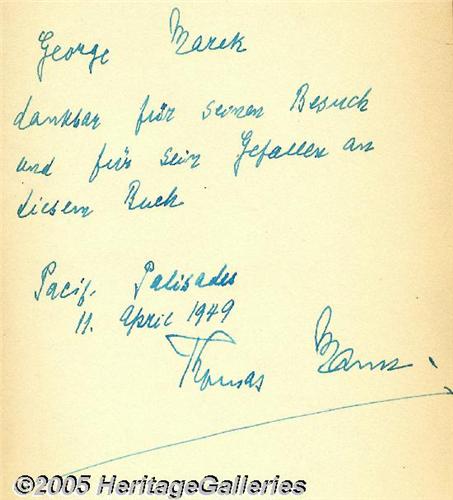 George Marek
dankbar für seinen Besuch
und für sein Gefallen an
diesem Buch
Pacif. Palisades
11. April 1949
Thomas Mann.
©2005 HeritageGalleries